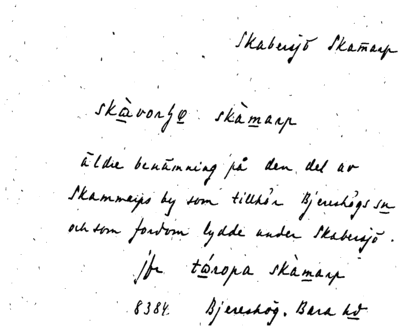 Skabersjö Skamarp
skàvorʂø skàmarp
äldre benämning på den del av
Skammarps by som tillhör Bjereshögs sn
och som fordom lydde under Skabersjö.
jfr táropa skàmarp
8384. Bjereshög. Bara hd